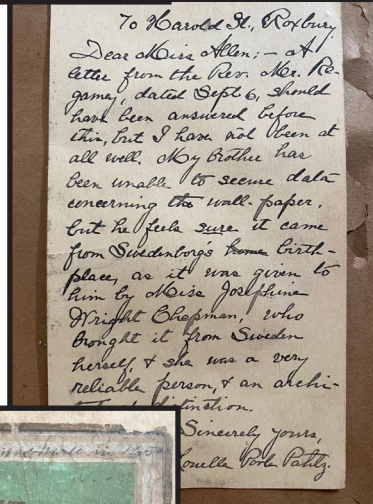 70 Harold St., Roxbury.
Dear Miss Allen; — A
letter from the Rev. Mr. Re-
gamey, dated Sept 6, should
have been answered before
this, but I have not been at
all well. My brother has
been unable to secure data
concerning the wall-paper,
but he feels sure it came
from Swedenborg's home birth-
place, as it was given to
him by Miss Josephine
Wright Chapman, who
brought it from Sweden
herself, & she was a very
reliable person, & an archi-
distinction.
Sincerely yours,